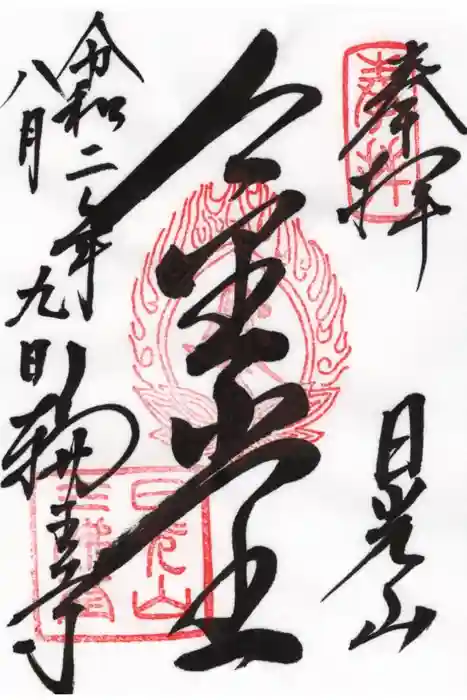 奉拝
日光山
金堂
令和二年
八月
九日
輪王寺
日光山
三佛堂